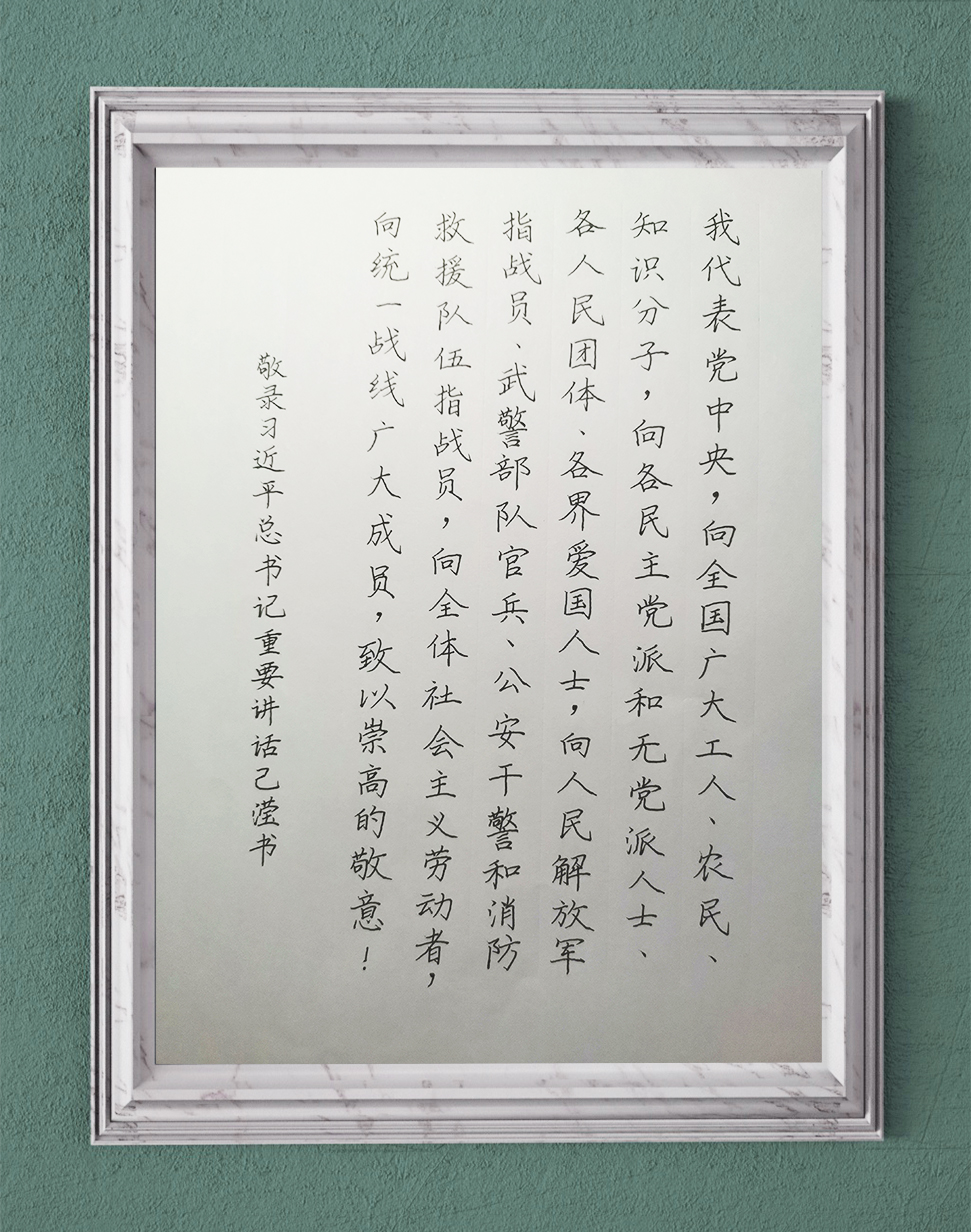 我代表党中央，向全国广大工人、农民、
知识分子，向各民主党派和无党派人士、
各人民团体、各界爱国人士，向人民解放军
指战员、武警部队官兵、公安干警和消防
救援队伍指战员，向全体社会主义劳动者，
向统一战线广大成员，致以崇高的敬意！
敬录习近平总书记重要讲话己滢书